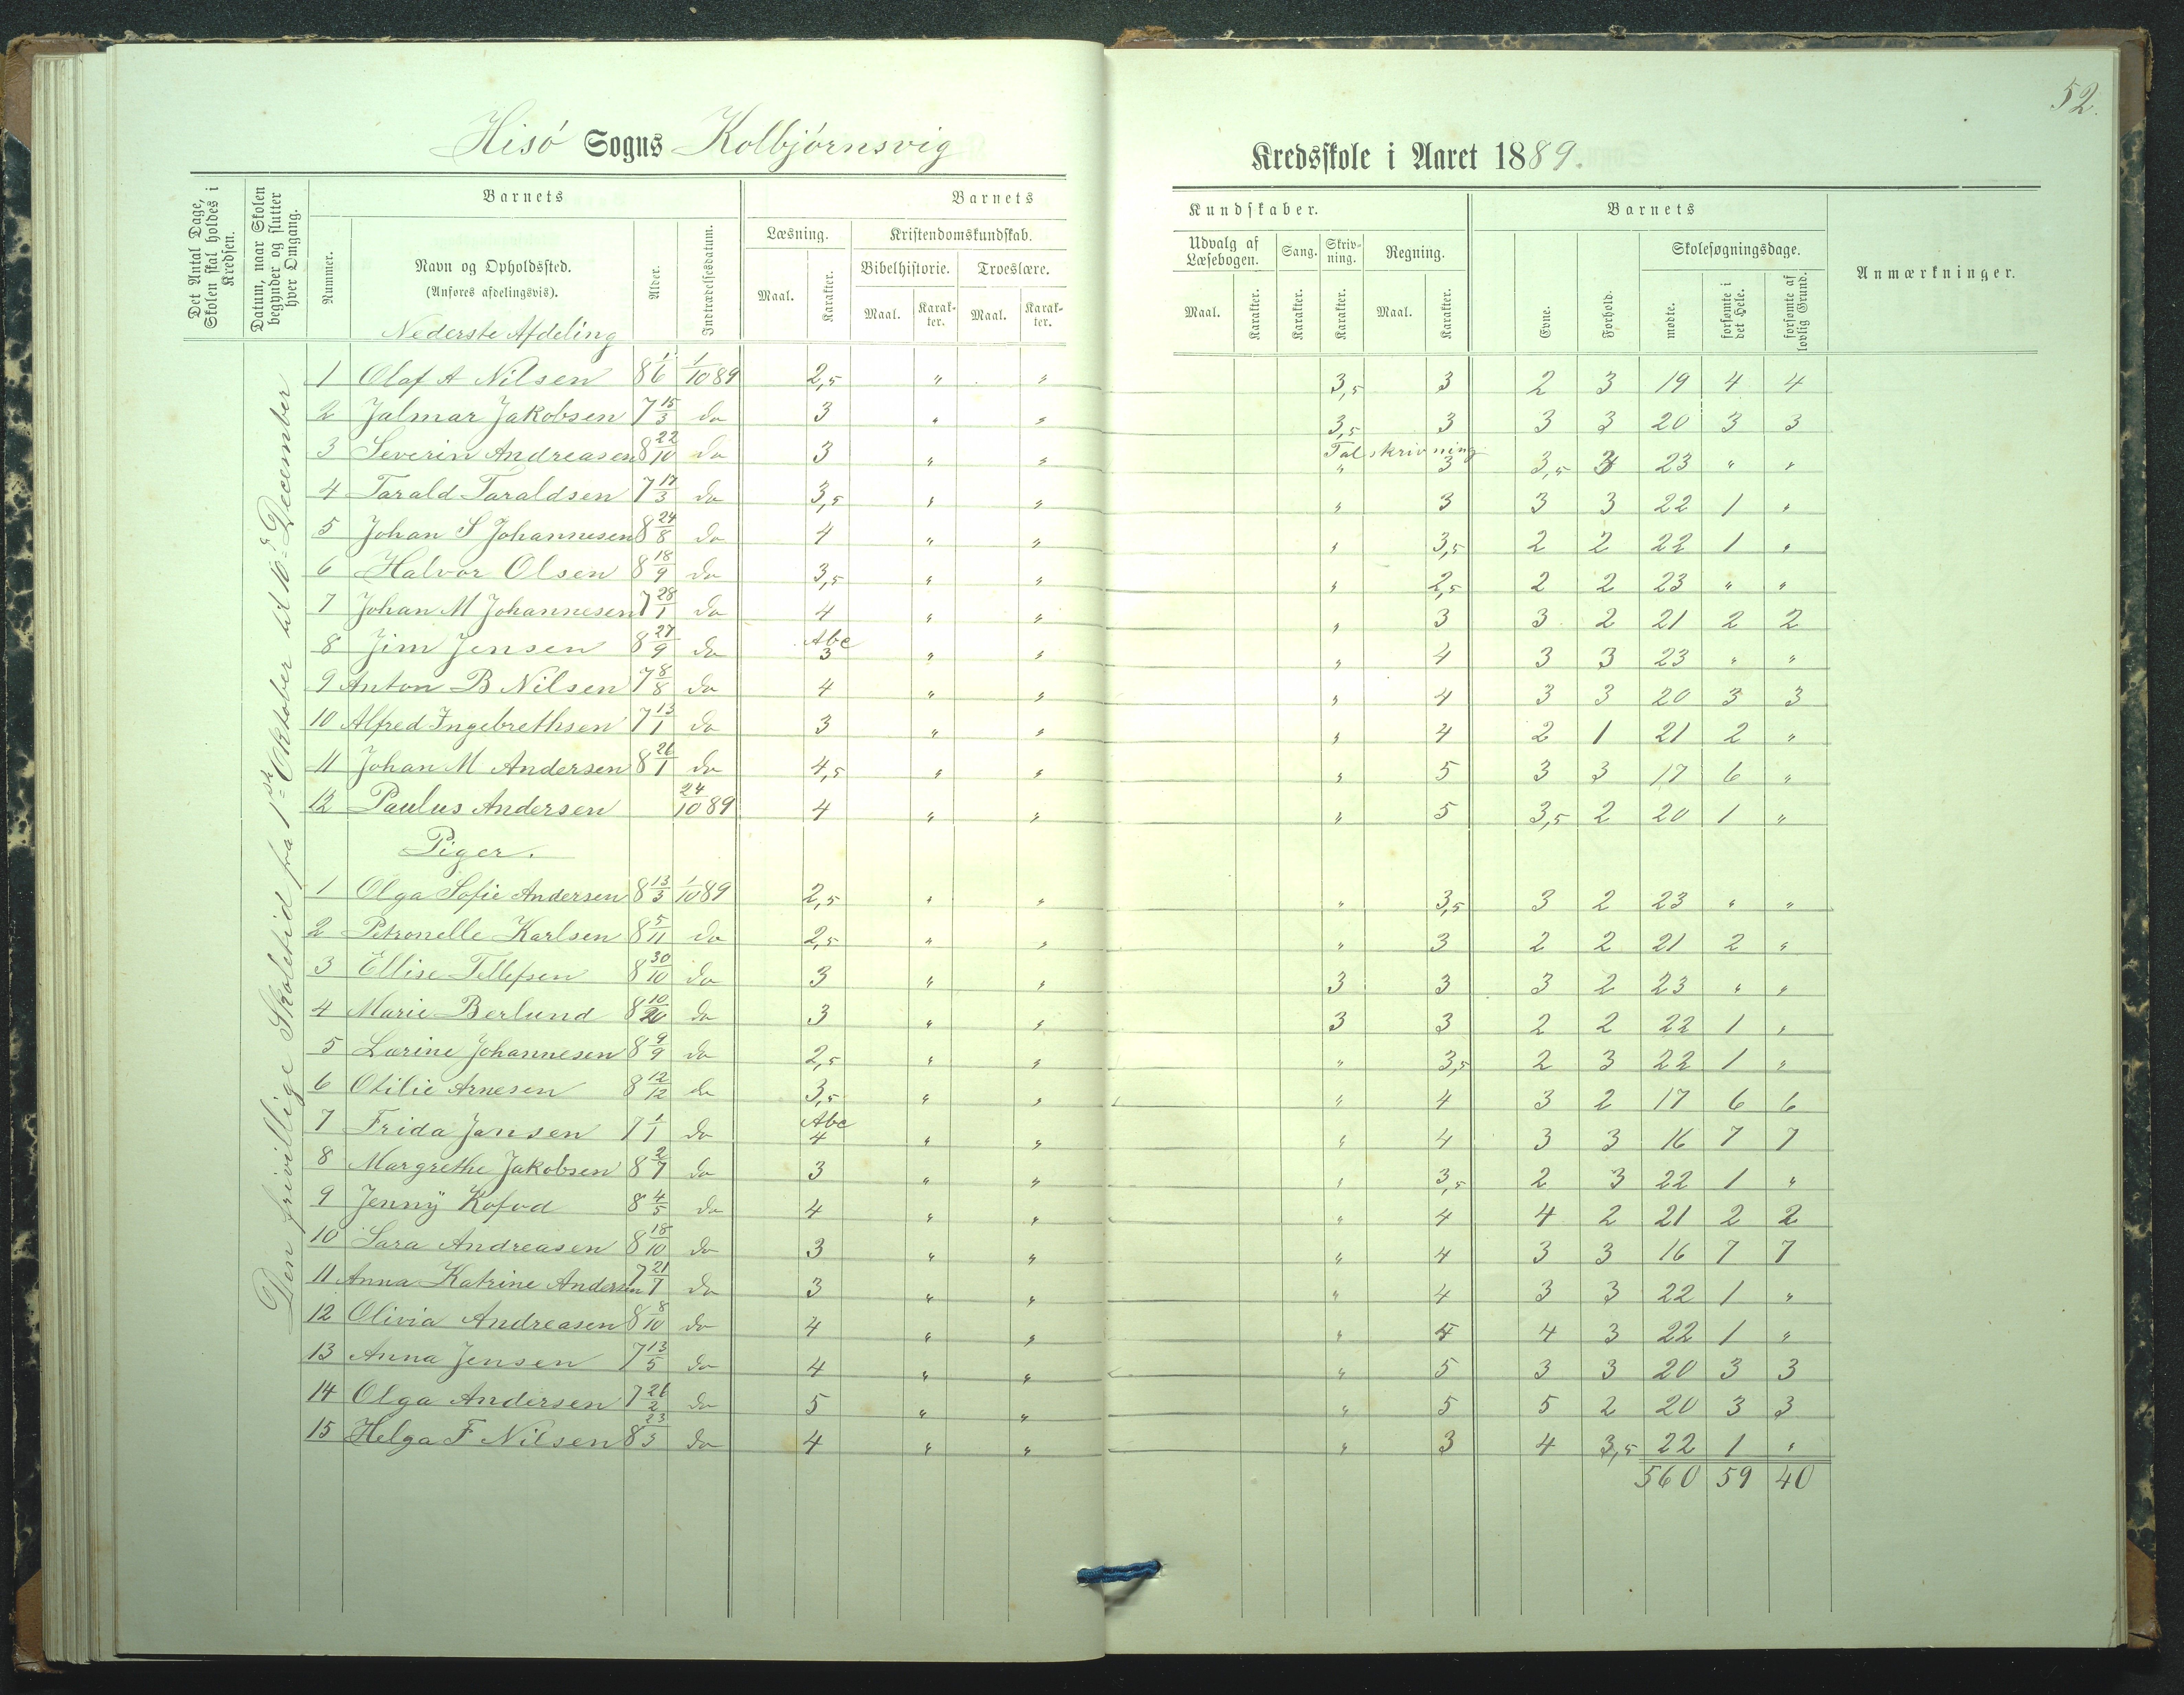 52.
Hisö Sogns Kolbjörnsvig Kredsskole i Aaret 1889.
Det Antal Dage, Skolen skal holdes i Kredsen.
Datum, naar Skolen begynder og slutter hver Omgang.
Barnets
Nummer.
Navn og Opholdssted.
(Anføres afdelingsvis).
Alder.
Indtrædelsesdatum.
Barnets Kundskaber.
Læsning.
Maal. Karakter.
Kristendomskundskab.
Bibelhistorie. Troeslære.
Maal. Karakter. Maal. Karakter.
Udvalg af Læsebogen.
Maal. Karakter.
Sang. Karakter.
Skrivning. Karakter.
Regning.
Maal. Karakter.
Barnets
Evne. Forhold.
Skolesøgningsdage.
mødte. forsømte i det Hele. forsømte af lovlig Grund.
Anmærkninger.
Nederste Afdeling
Den frivillige Skoletid fra 1ste Oktober til 16de December
1 Olaf A Nilsen 8 1/6 1/10 89 2,5 " " 3,5 3 2 3 19 4 4
2 Jalmar Jakobsen 7 15/3 do 3 " " 3,5 3 3 3 20 3 3
Talskrivning
3 Severin Andreasen 8 22/10 do 3 " " " 3 3,5 3 23 " "
4 Tarald Taraldsen 7 17/3 do 3,5 " " " 3 3 3 22 1 "
5 Johan S Johannesen 8 24/8 do 4 " " " 3,5 2 2 22 1 "
6 Halvor Olsen 8 18/9 do 3,5 " " " 2,5 2 2 23 " "
7 Johan M Johannesen 7 28/1 do 4 " " " 3 3 2 21 2 2
8 Jim Jensen 8 27/9 do Abc 3 " " " 4 3 3 23 " "
9 Anton B Nilsen 7 8/8 do 4 " " " 4 3 3 20 3 3
10 Alfred Ingebrethsen 7 13/1 do 3 " " " 4 2 1 21 2 "
11 Johan M Andersen 8 26/1 do 4,5 " " " 5 3 3 17 6 "
12 Paulus Andersen 24/10 89 4 " " " 5 3,5 2 20 1 "
Piger.
1 Olga Sofie Andersen 8 13/3 1/10 89 2,5 " " " 3,5 3 2 23 " "
2 Petronelle Karlsen 8 5/11 do 2,5 " " " 3 2 2 21 2 "
3 Ellise Tellefsen 8 30/10 do 3 " " 3 3 3 2 23 " "
4 Marie Berlund 8 10/ do 3 " " 3 3 2 2 22 1 "
5 Lorine Johannesen 8 9/9 do 2,5 " " " 3,5 2 3 22 1 "
6 Otilie Arnesen 8 12/12 do 3,5 " " " 4 3 2 17 6 6
7 Frida Jansen 7 1/1 do Abc 4 " " " 4 3 3 16 7 7
8 Margrethe Jakobsen 8 2/7 do 3 " " " 3,5 2 3 22 1 "
9 Jenny Kofod 8 4/5 do 4 " " " 4 4 2 21 2 2
10 Sara Andreasen 8 18/10 do 3 " " " 4 3 3 16 7 7
11 Anna Katrine Andersen 7 21/7 do 3 " " " 4 3 3 22 1 "
12 Olivia Andreasen 8 8/10 do 4 " " " 4 4 3 22 1 "
13 Anna Jensen 7 13/5 do 4 " " " 5 3 3 20 3 3
14 Olga Andersen 7 26/2 do 5 " " " 5 5 2 20 3 3
15 Helga F Nilsen 8 23/3 do 4 " " " 3 4 3,5 22 1 "
560 59 40